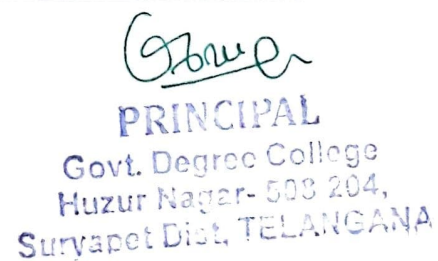 PRINCIPAL
Govt. Degree College
Huzur Nagar- 508 204,
Suryapet Dist, TELANGANA